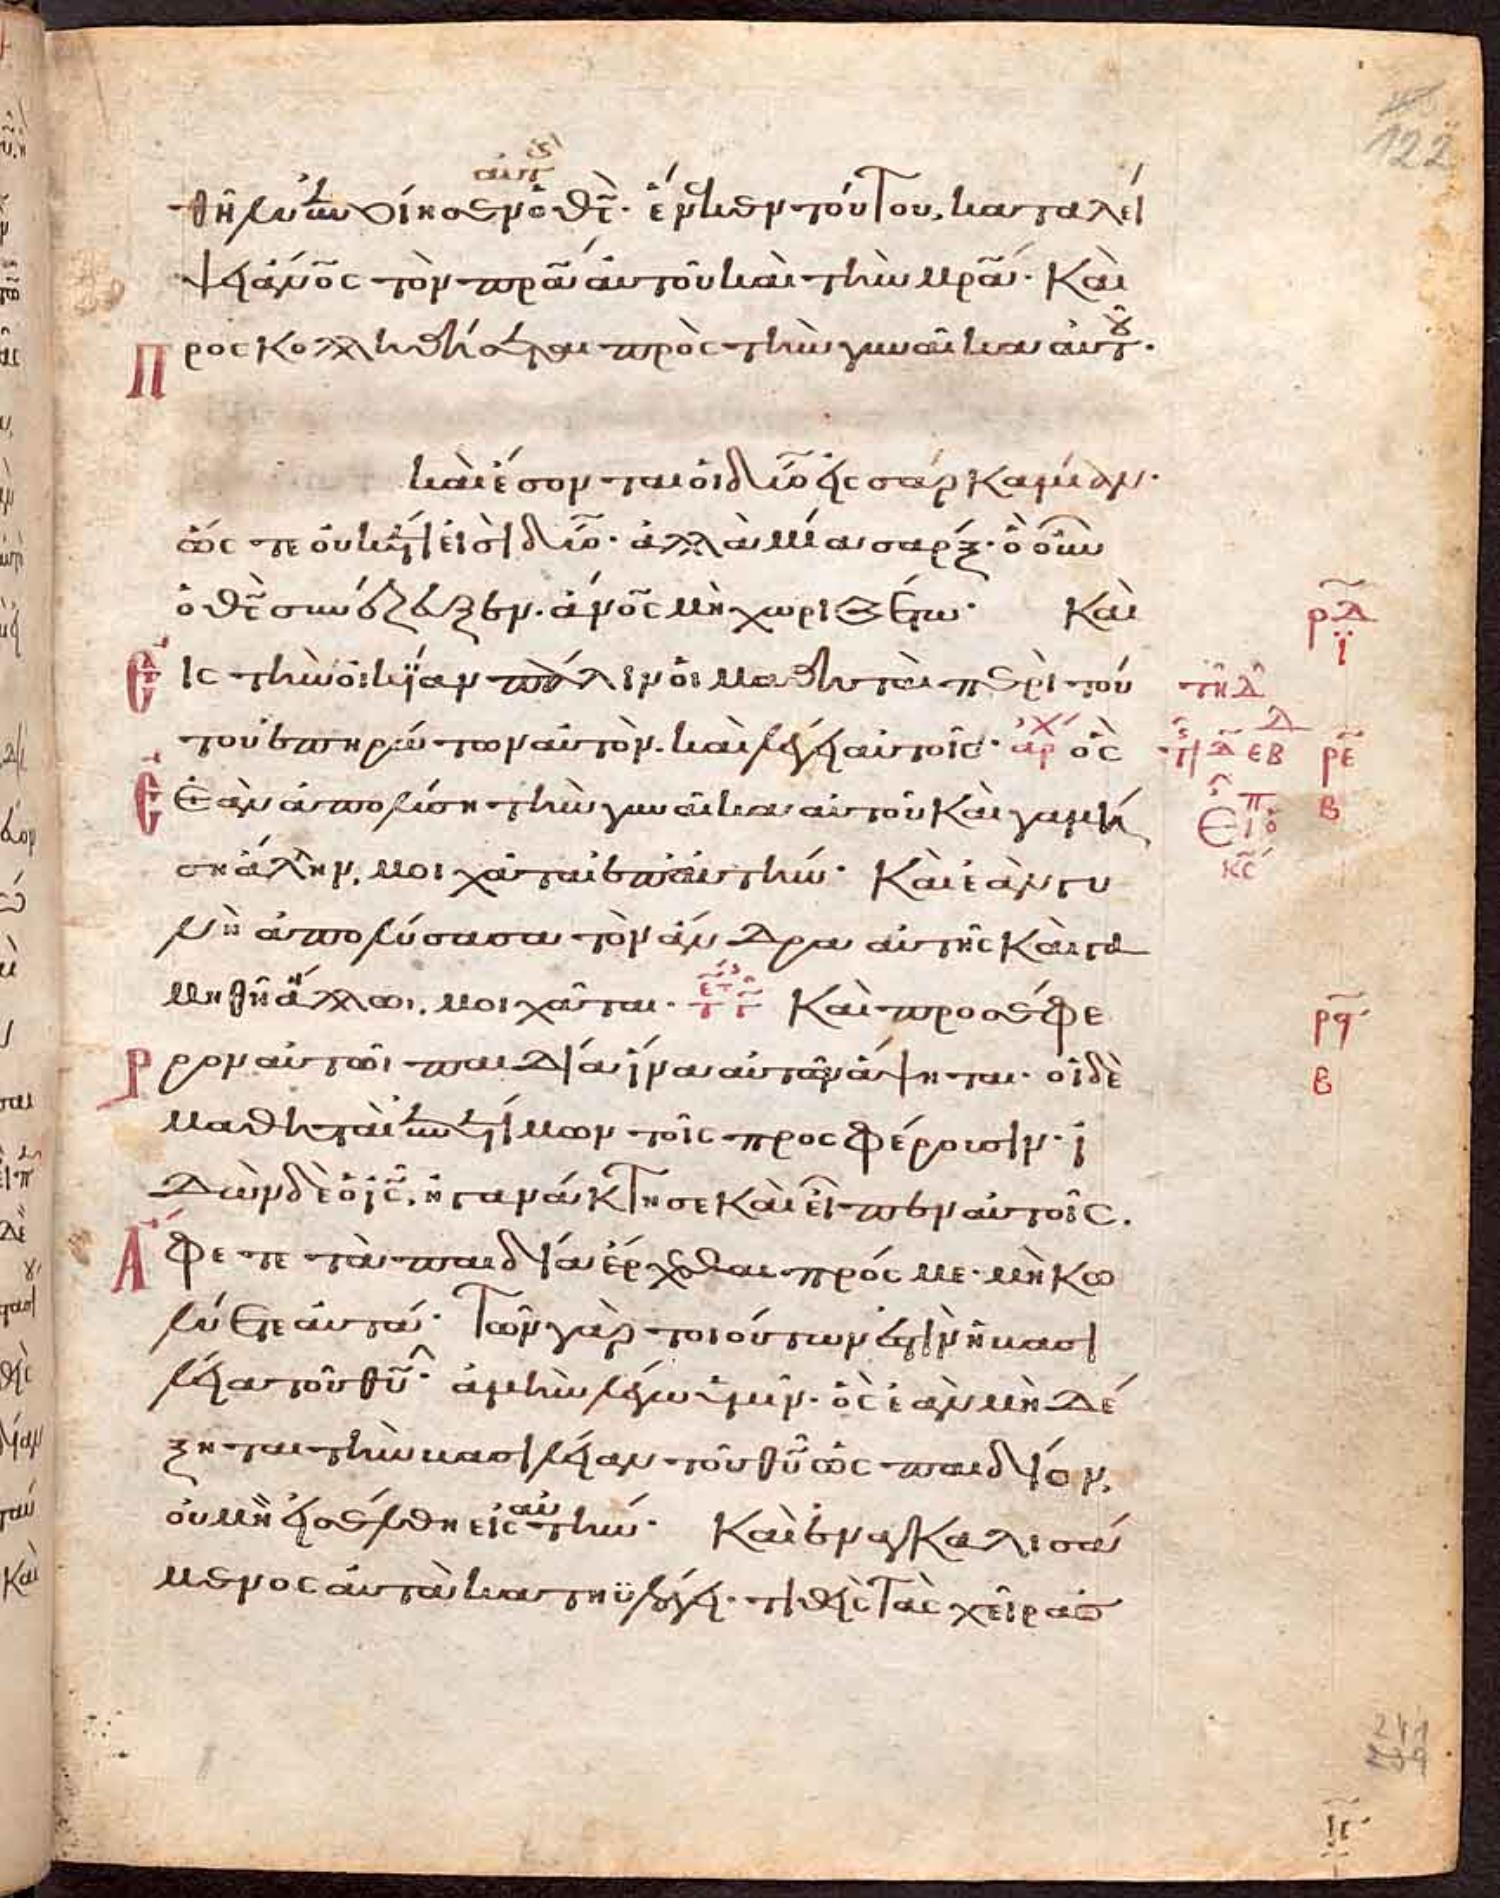 122
αυτουσ
θῆλυ ἐποίησεν ὁ θς̄. ἕνεκεν τούτου, καταλεί
ψει ἄνος̄ τὸν πρᾱ αὐτοῦ καὶ τὴν μρᾱ. Καὶ
Προσκολληθήσεται πρὸς τὴν γυναῖκα αὐτοῦ.
καὶ ἔσονται οἱ δύο εἰς σάρκα μίαν.
ὥς τε οὐκέτι εἰσὶ δύο. ἀλλὰ μία σαρξ. ὃ οὖν
ὁ θς̄ συνέζευξεν. ἄνος̄ μὴ χωριζέτω. Καὶ
ρδ̄
ϊ
Εἰς τὴν οἰκΐαν πάλιν οἱ μαθηταὶ περὶ τού
τῆ δ
του ἐπηρώτων αὐτὸν. καὶ λέγει αὐτοῖς. ἀρχ ὃς
ρε̄
Ἐὰν ἀπολύση τὴν γυναῖκα αὐτοῦ Καὶ γαμή
β
ση ἄλλην, μοιχᾶται ἐπ αὐτήν. Καὶ ἐὰν γυ
κς̄
νὴ ἀπολύσασα τὸν ἄνδρα αὐτῆς Καὶ γα
μηθῆ ἄλλωι, μοιχᾶται. Καὶ προσέφε
ρϛ̄
ρον αὐτῶι παιδία ἵνα αὐτῶν ἅψηται. οἱ δὲ
β
μαθηταὶ ἐπετίμων τοῖς προσφέρουσιν. ἰ
δὼν δὲ ὁ ις̄, ἠγανάκτησε Καὶ εἶπεν αὐτοῖς.
Ἄφετε τὰ παιδία ἔρχεσθαι πρός με. μὴ Κω
λύετε αὐτά. Τῶν γὰρ τοιούτων ἐστὶν ἡ βασι
λεία τοῦ θῡ. ἀμὴν λέγω ὑμῖν. ὃς ἐὰν μὴ δέ
ξηται τὴν βασιλείαν τοῦ θῡ ὡς παιδίον,
οὐ μὴ εἰσέλθη εἰς αὐτήν. Καὶ ἐναγκαλισά
μενος αὐτὰ κατηϋλόγει. τιθεὶς Τὰς χεῖρας